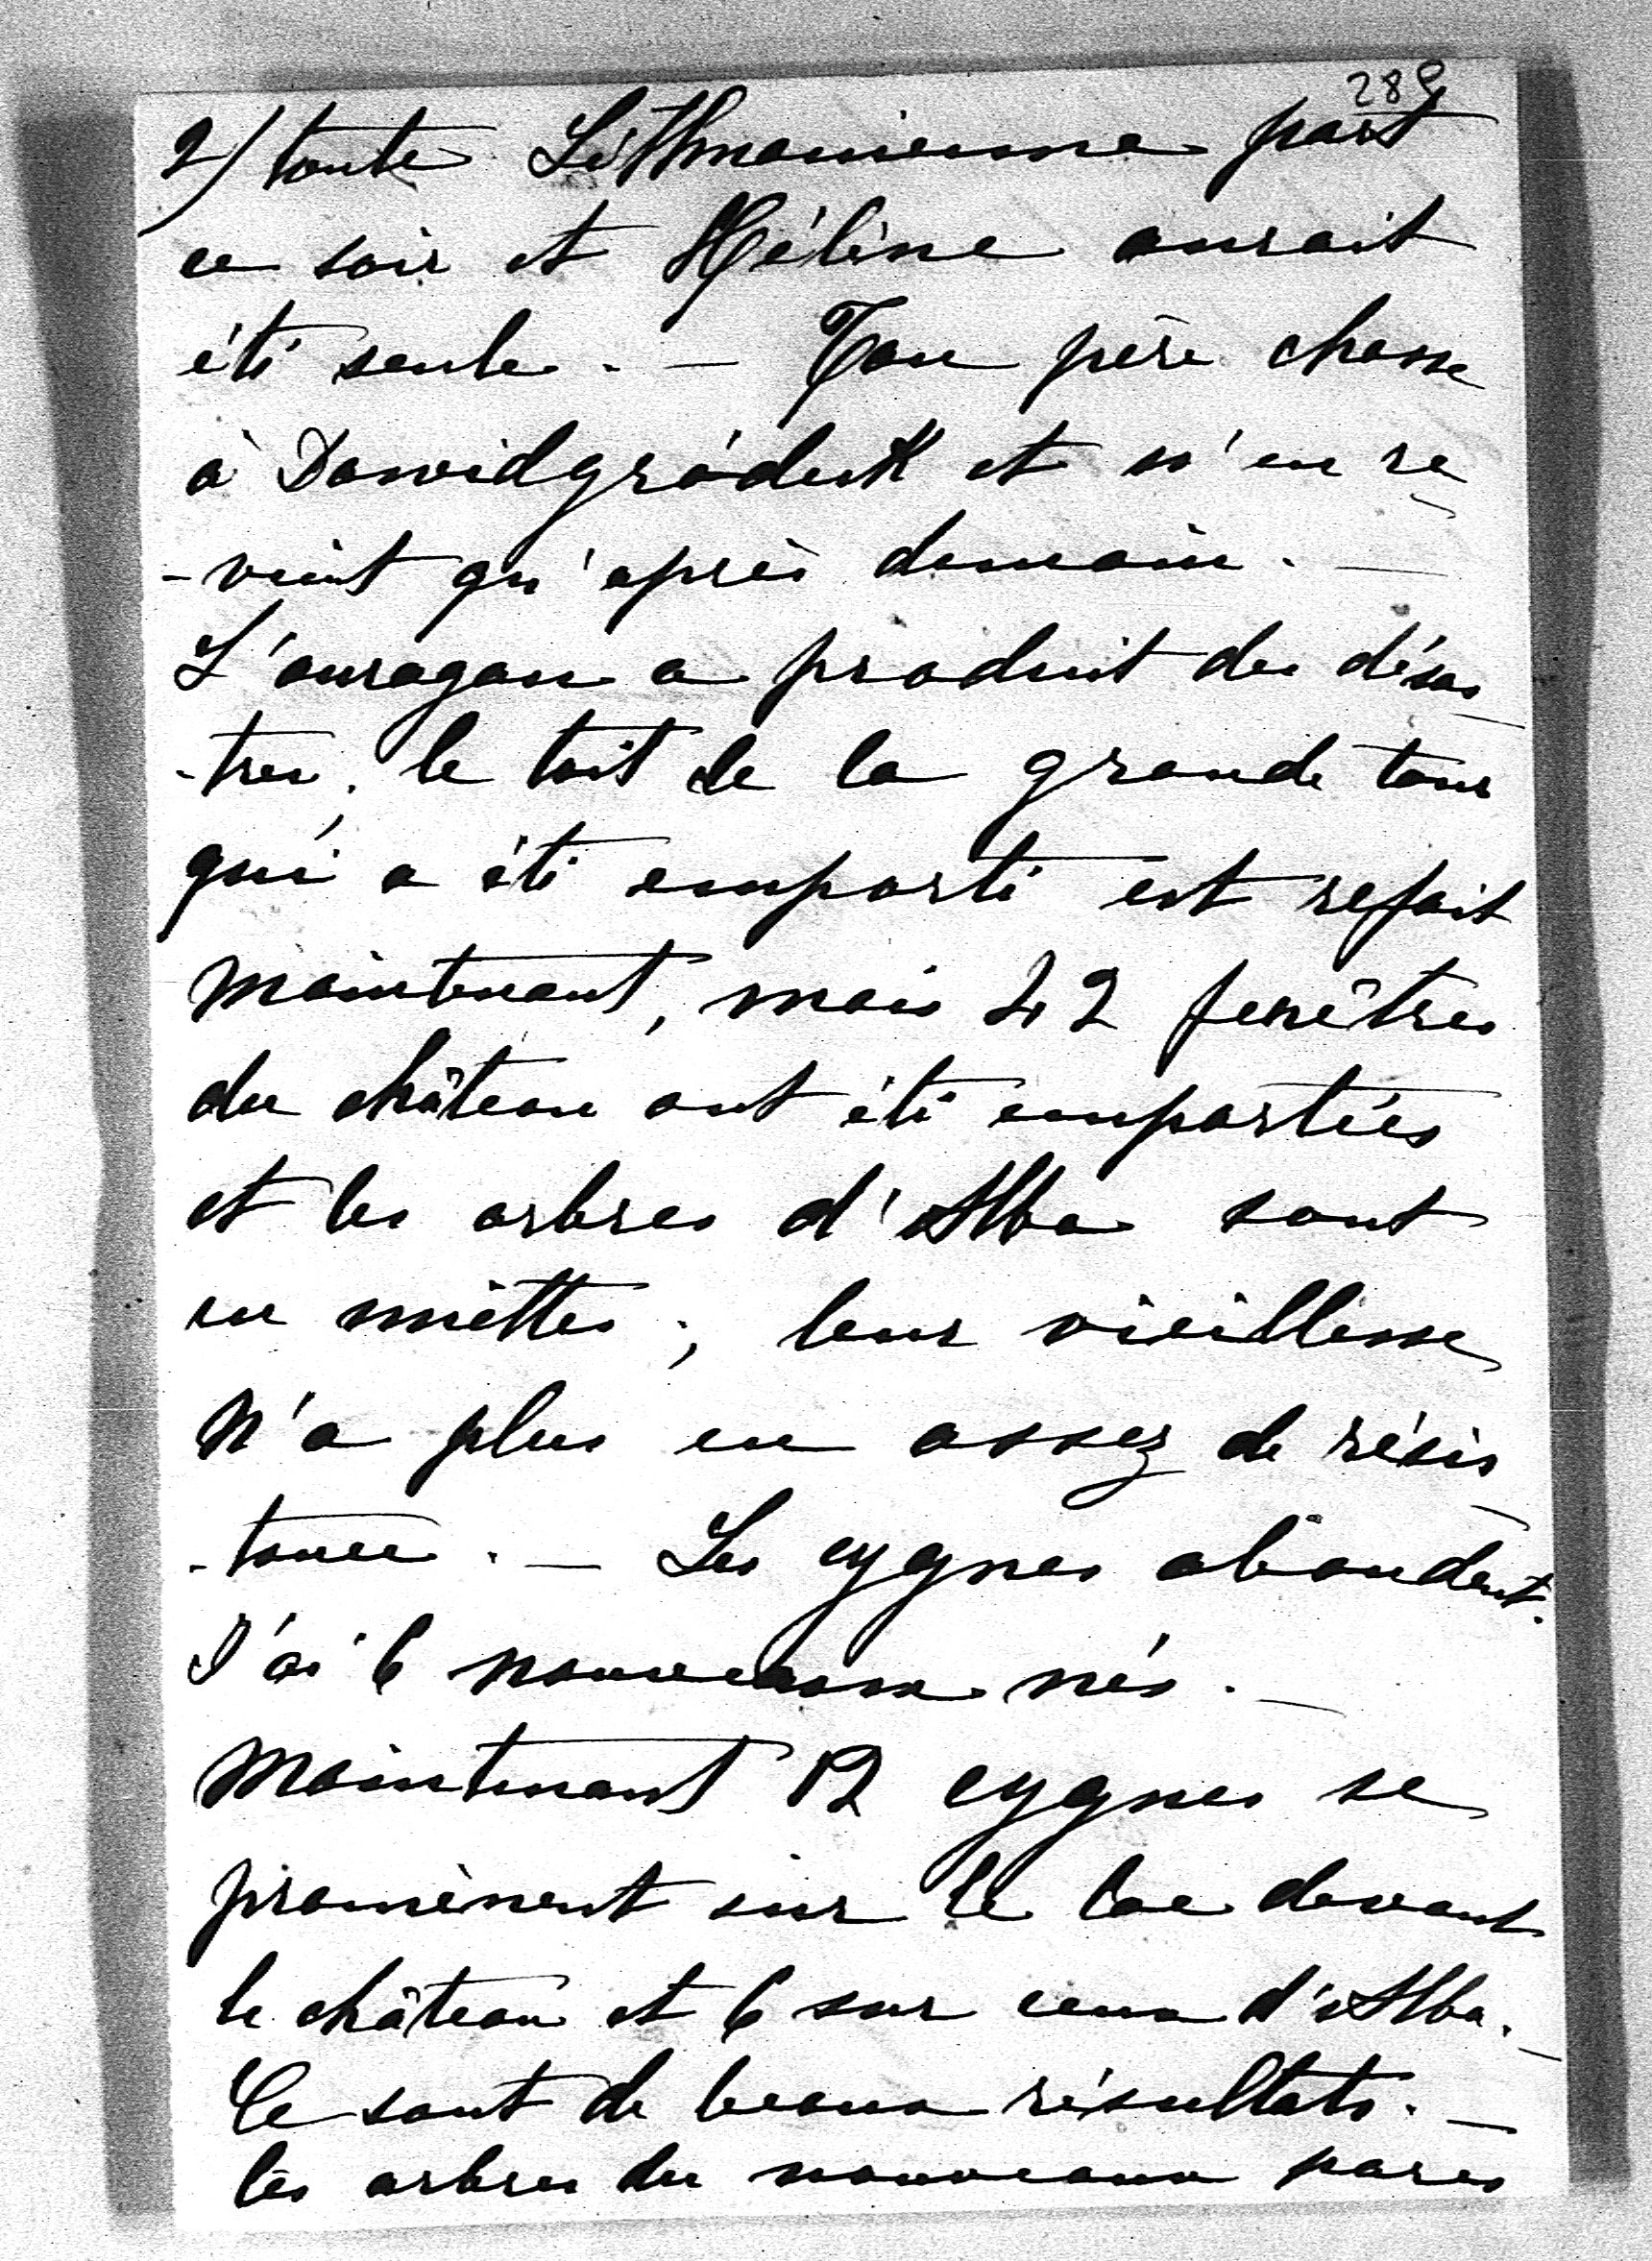 289
2) toute Lithuanienne part
ce soir et Hélène aurait
été seule. — Ton père chasse
à Dawidgródeck et n'en re
-vient qu'après demain. —
L'ouragan a produit des désas
-tres, le toit de la grande tour
qui a été emporté est refait
maintenant, mais 42 fenêtres
du château ont été emportées
et les arbres d'Alba sont
en miettes ; leur vieillesse
n'a plus eu assez de résis
-tance. — Les cygnes abondent.
J'ai 6 nouveaux nés. —
Maintenant 12 cygnes se
promènent sur le lac devant
le château et 6 sur ceux d'Alba. —
Ce sont de beaux résultats. —
les arbres des nouveaux parcs